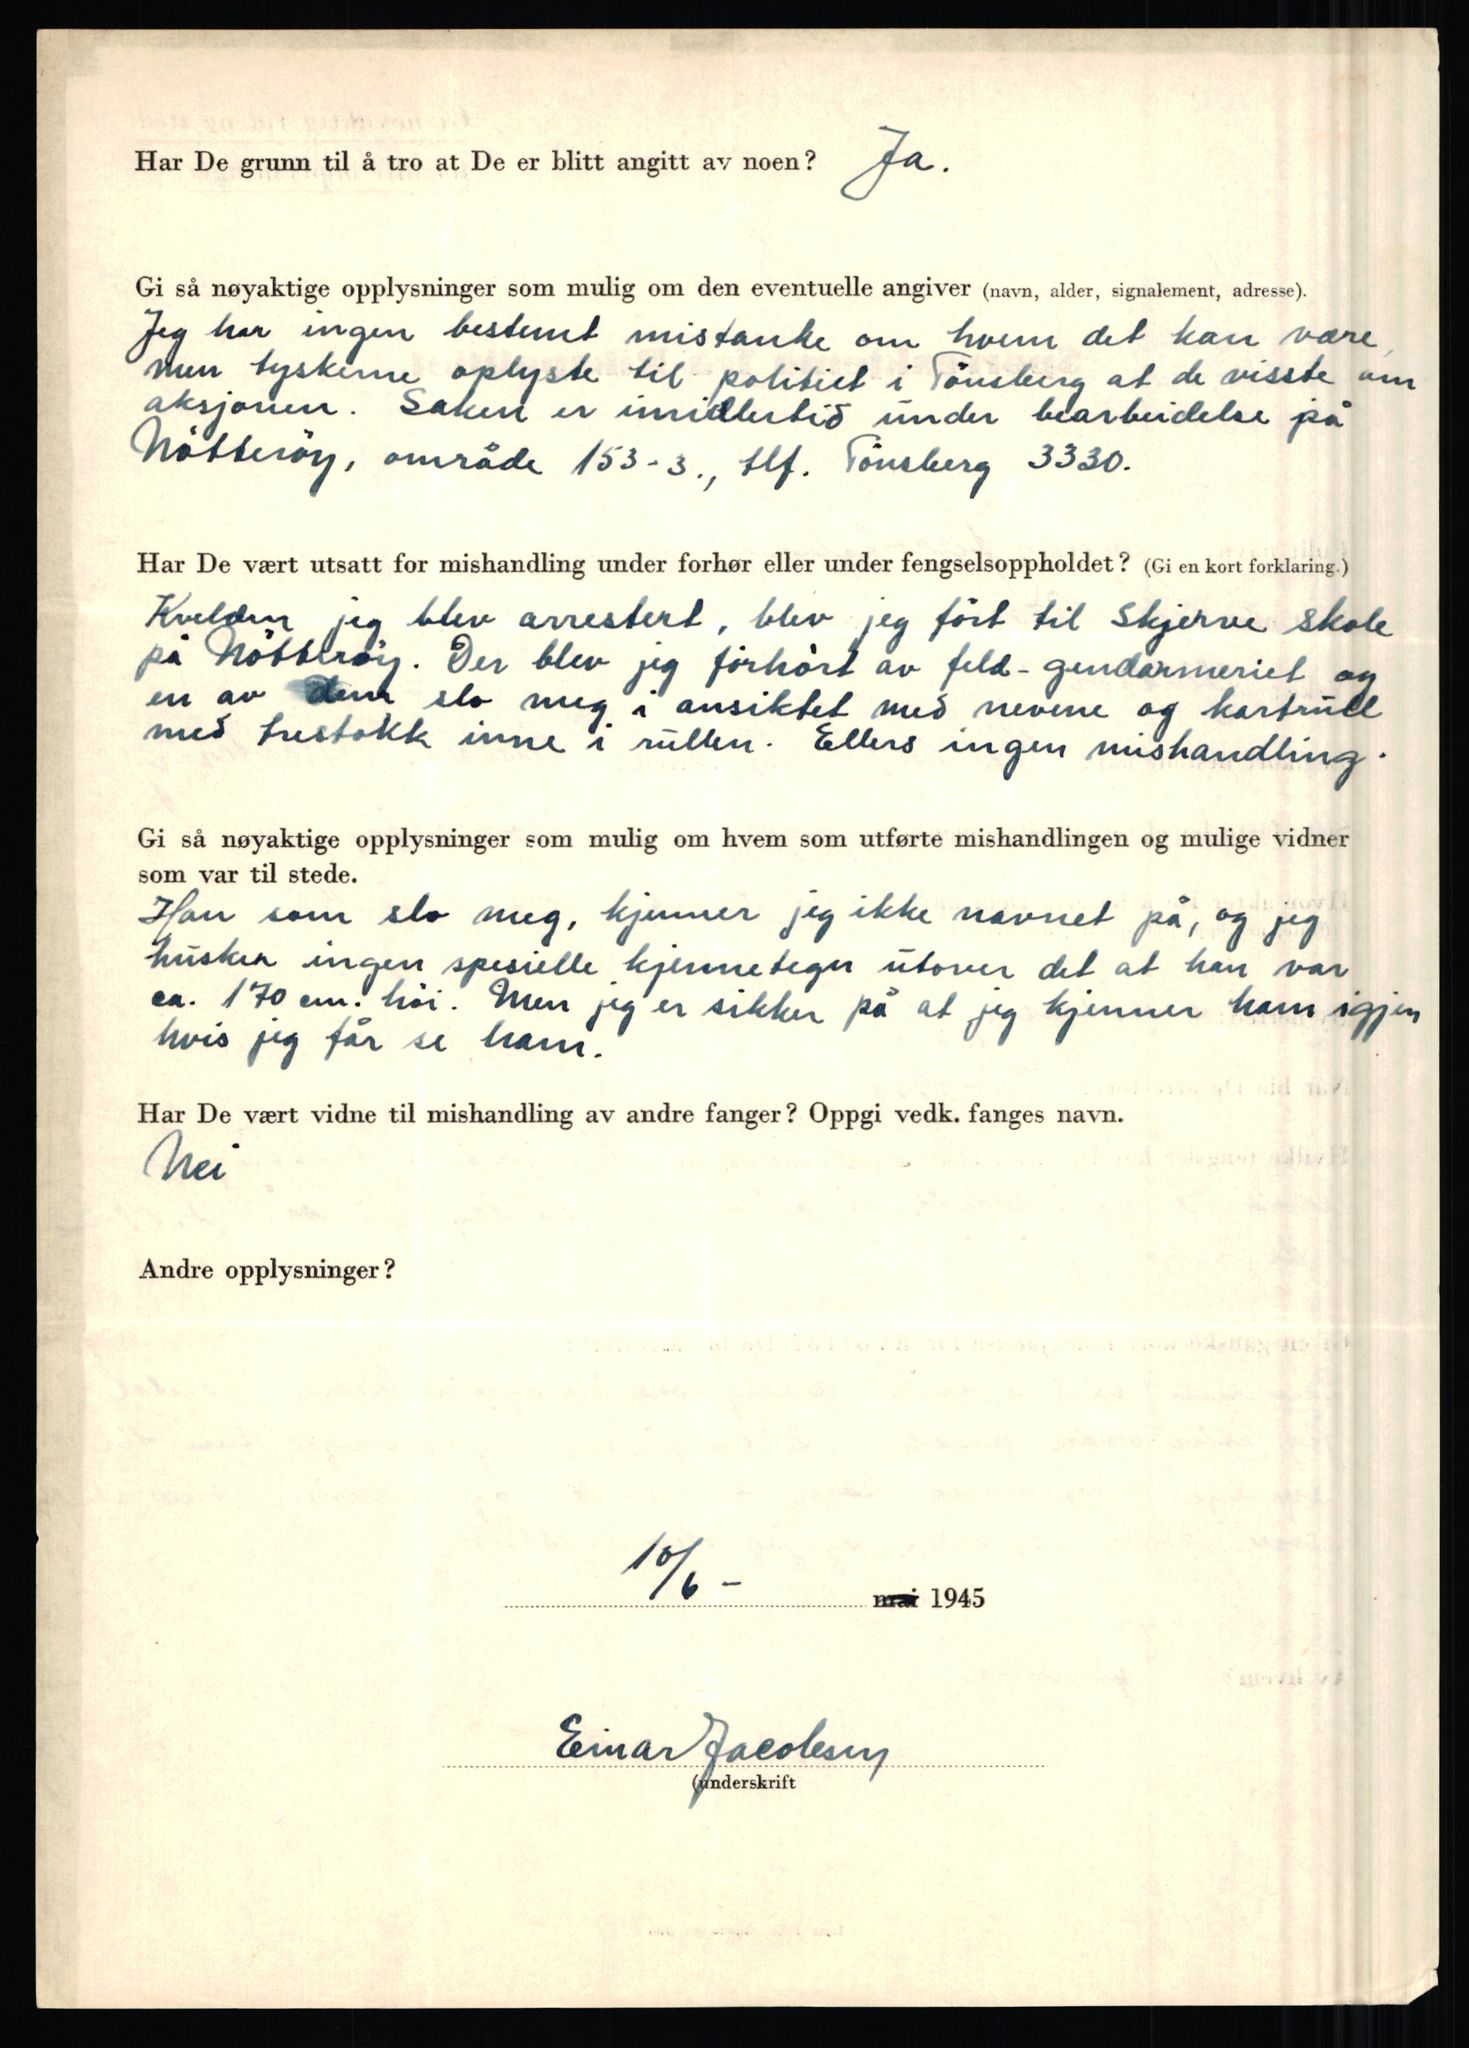 Har De grunn til å tro at De er blitt angitt av noen? Ja.
Gi så nøyaktige opplysninger som mulig om den eventuelle angiver (navn, alder, signalement, adresse).
Jeg har ingen bestemt mistanke om hvem det kan være,
men tyskerne oplyste til politiet i Tönsberg at de visste om
aksjonen. Saken er imidlertid under bearbeidelse på
Nötteröy, område 153-3., tlf. Tönsberg 3330.
Har De vært utsatt for mishandling under forhør eller under fengselsoppholdet? (Gi en kort forklaring.)
Kvelden jeg blev arrestert, blev jeg fört til Skjerve skole
på Nötteröy. Der blev jeg forhört av feld-gendarmeriet og
en av dem slo meg i ansiktet med nevene og kartrull
med trestokk inne i rullen. Ellers ingen mishandling.
Gi så nøyaktige opplysninger som mulig om hvem som utførte mishandlingen og mulige vidner
som var til stede.
Han som slo meg, kjenner jeg ikke navnet på, og jeg
husker ingen spesielle kjennetegn utover det at han var
ca. 170 cm. höi. Men jeg er sikker på at jeg kjenner ham igjen
hvis jeg får se ham.
Har De vært vidne til mishandling av andre fanger? Oppgi vedk. fanges navn.
Nei
Andre opplysninger?
10/6- mai 1945
Einar Jacobsen
(underskrift